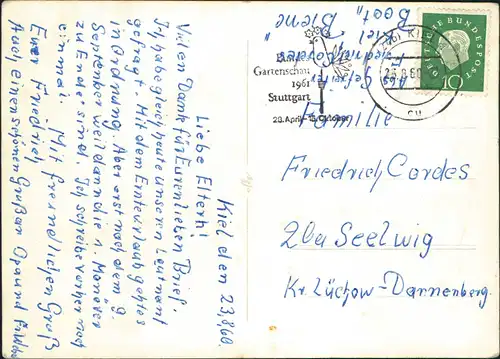 Kiel, den 23.8.60.
Liebe Eltern!
Vielen Dank für Euren lieben Brief.
Ich hab gleich heute unseren Leutnant
gefragt. Mit dem Ernteurlaub geht es
in Ordnung. Aber erst nach dem 9.
September weil dann die 1. Manöver
zu Ende sind. Ich schreibe vorher noch
einmal.
Mit freundlichem Gruß
Euer Friedrich
Noch einen schönen Gruß an Opa und
Abs. Gefreiter
Kiel
Boot "Biene"
Bundes
Gartenschau
1961
Stuttgart
28. April - 15. Oktober
KIEL
DEUTSCHE BUNDESPOST
10
Familie
Friedrich Cordes
20a Seelwig
Kr. Lüchow-Dannenberg.